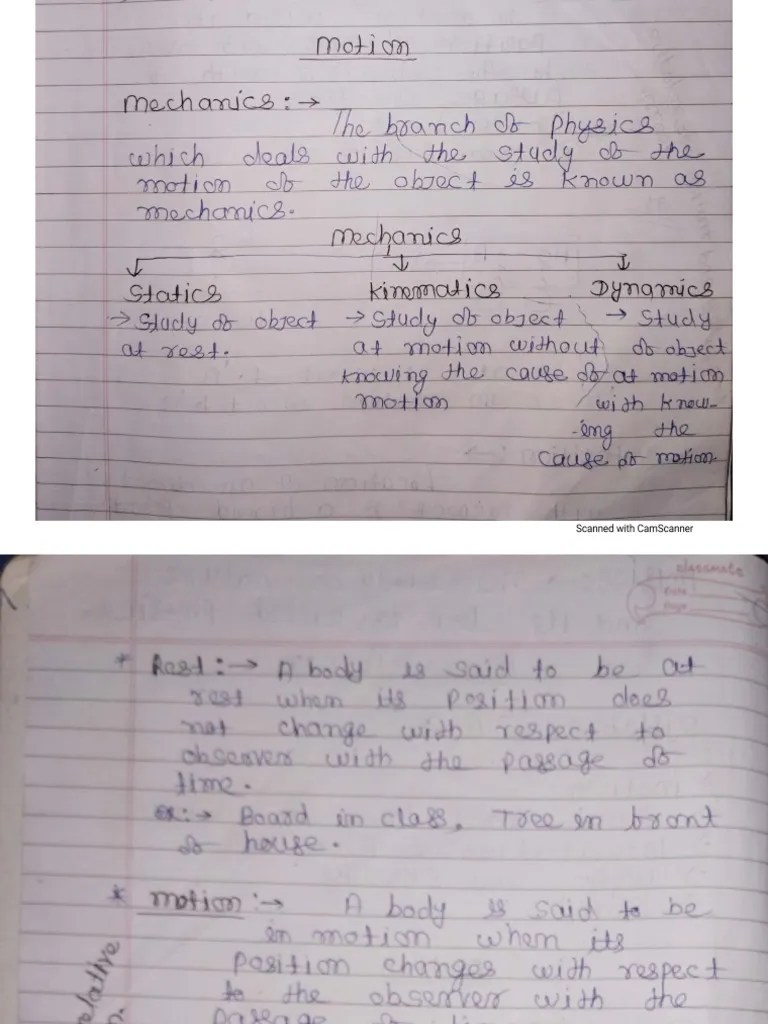 Motion
Mechanics :→
The branch of Physics
which deals with the study of the
motion of the object is known as
mechanics.
Mechanics
Statics
→ Study of object
at rest.
Kinematics
→ Study of object
at motion without
knowing the cause of
motion
Dynamics
→ Study
of object
at motion
with know-
-ing the
cause of motion.
Scanned with CamScanner
classmate
Date
Page
* Rest :→ A body is said to be at
rest when its position does
not change with respect to
observer with the passage of
time.
Ex :→ Board in class, Tree in front
of house.
* Motion :→ A body is said to be
in motion when its
position changes with respect
to the observer with the
passage of time